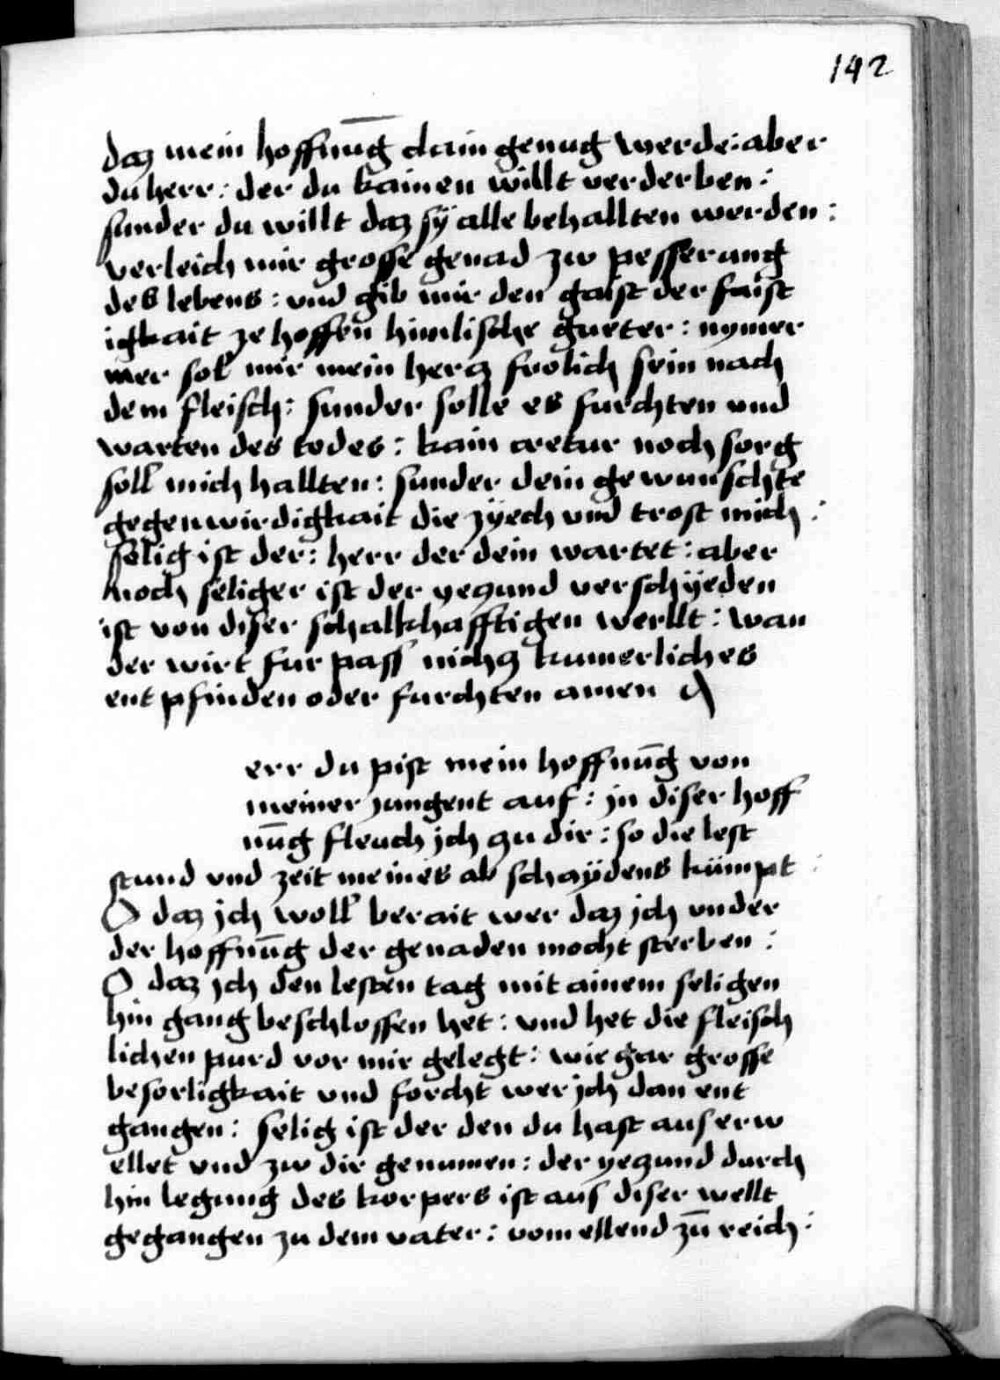 142
daz mein hoffnūg clain genug werde : aber
du herr : der du kainen willt verderben :
sunder du willt daz sÿ alle behallten werden :
verleich mir grosse genad zw pesserung
des lebens : vnd gib mir den gaist der faist
igkait ze hoffen himlische gueter : nymer
mer sol mir mein hercz frolich sein nach
dem fleisch : sunder solle es furchten vnd
warten des todes : kain cretur noch sorg
soll mich hallten : sunder dein gewunschte
gegenwirdigkait die zÿech vnd trost mich :
selig ist der : herr der dein wartet : aber
noch seliger ist der yeczund verschÿeden
ist von diser schalkhafftigen werllt : wan
der wirt fur pass nichcz kumerliches
entpfinden oder furchten amen
err du pist mein hoffnūg von
meiner jungent auf : jn diser hoff
nūg fleuch jch czu dir : so die lest
stund vnd zeit meines abschaÿdens kümpt :
O daz jch woll berait wer daz jch vnder
der hoffnūg der genaden mocht sterben :
O daz jch den lesten tag mit ainem seligen
hin gang beschlossen het : vnd het die fleisch
lichen purd vor mir gelegt : wie gar grosse
besorligkait vnd forcht wer jch dan ent
gangen : selig ist der den du hast auserw
ellet vnd zw dir genumen : der yeczund durch
hin legung des korpers ist aus diser wellt
gegangen zu dem vater : vom ellend zū reich :